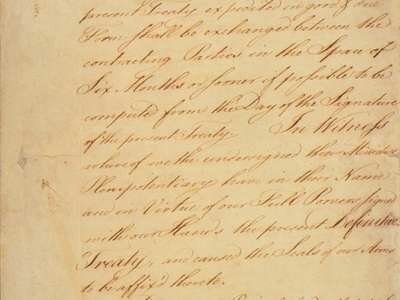 present Treaty expedited in good & due
Form shall be exchanged between the
contracting Parties in the Space of
Six Months or sooner if possible to be
computed from the Day of the Signature
of the present Treaty. In Witness
whereof we the undersigned their Ministers
Plenipotentiary have in their Name
and in Virtue of our Full Powers signed
with our Hands the present Definitive
Treaty, and caused the Seals of our Arms
to be affix'd thereto.